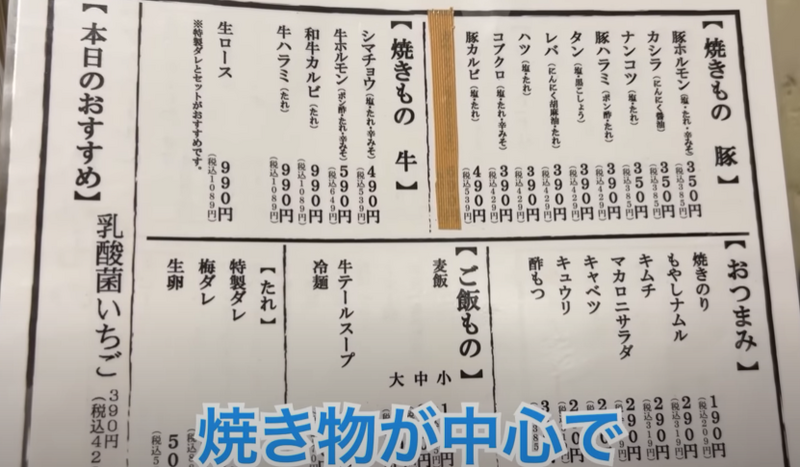 【焼きもの 豚】
豚ホルモン(塩・たれ・辛みそ) 350円(税込385円)
カシラ(にんにく醤油) 350円(税込385円)
ナンコツ(塩・たれ) 350円(税込385円)
豚ハラミ(ポン酢・たれ) 390円(税込429円)
タン(塩・黒こしょう) 390円(税込429円)
レバ(にんにく胡麻油・たれ) 390円(税込429円)
ハツ(塩・たれ) 390円(税込429円)
コブクロ(塩・たれ・辛みそ) 390円(税込429円)
豚カルビ(塩・たれ) 490円(税込539円)
【焼きもの 牛】
シマチョウ(塩・たれ・辛みそ) 490円(税込539円)
牛ホルモン(ポン酢・たれ・辛みそ) 590円(税込649円)
和牛カルビ(たれ) 990円(税込1089円)
牛ハラミ(たれ) 990円(税込1089円)
生ロース 990円(税込1089円)
※特製ダレとセットがおすすめです。
【おつまみ】
焼きのり 190円(税込209円)
もやしナムル 290円(税込319円)
キムチ 290円(税込319円)
マカロニサラダ 290円
キャベツ
キュウリ
酢もつ
【ご飯もの】
麦飯 小
中
大
牛テールスープ
冷麺
【たれ】
特製ダレ
梅ダレ
生卵 50
【本日のおすすめ】
乳酸菌いちご 390円(税込42
焼き物が中心で